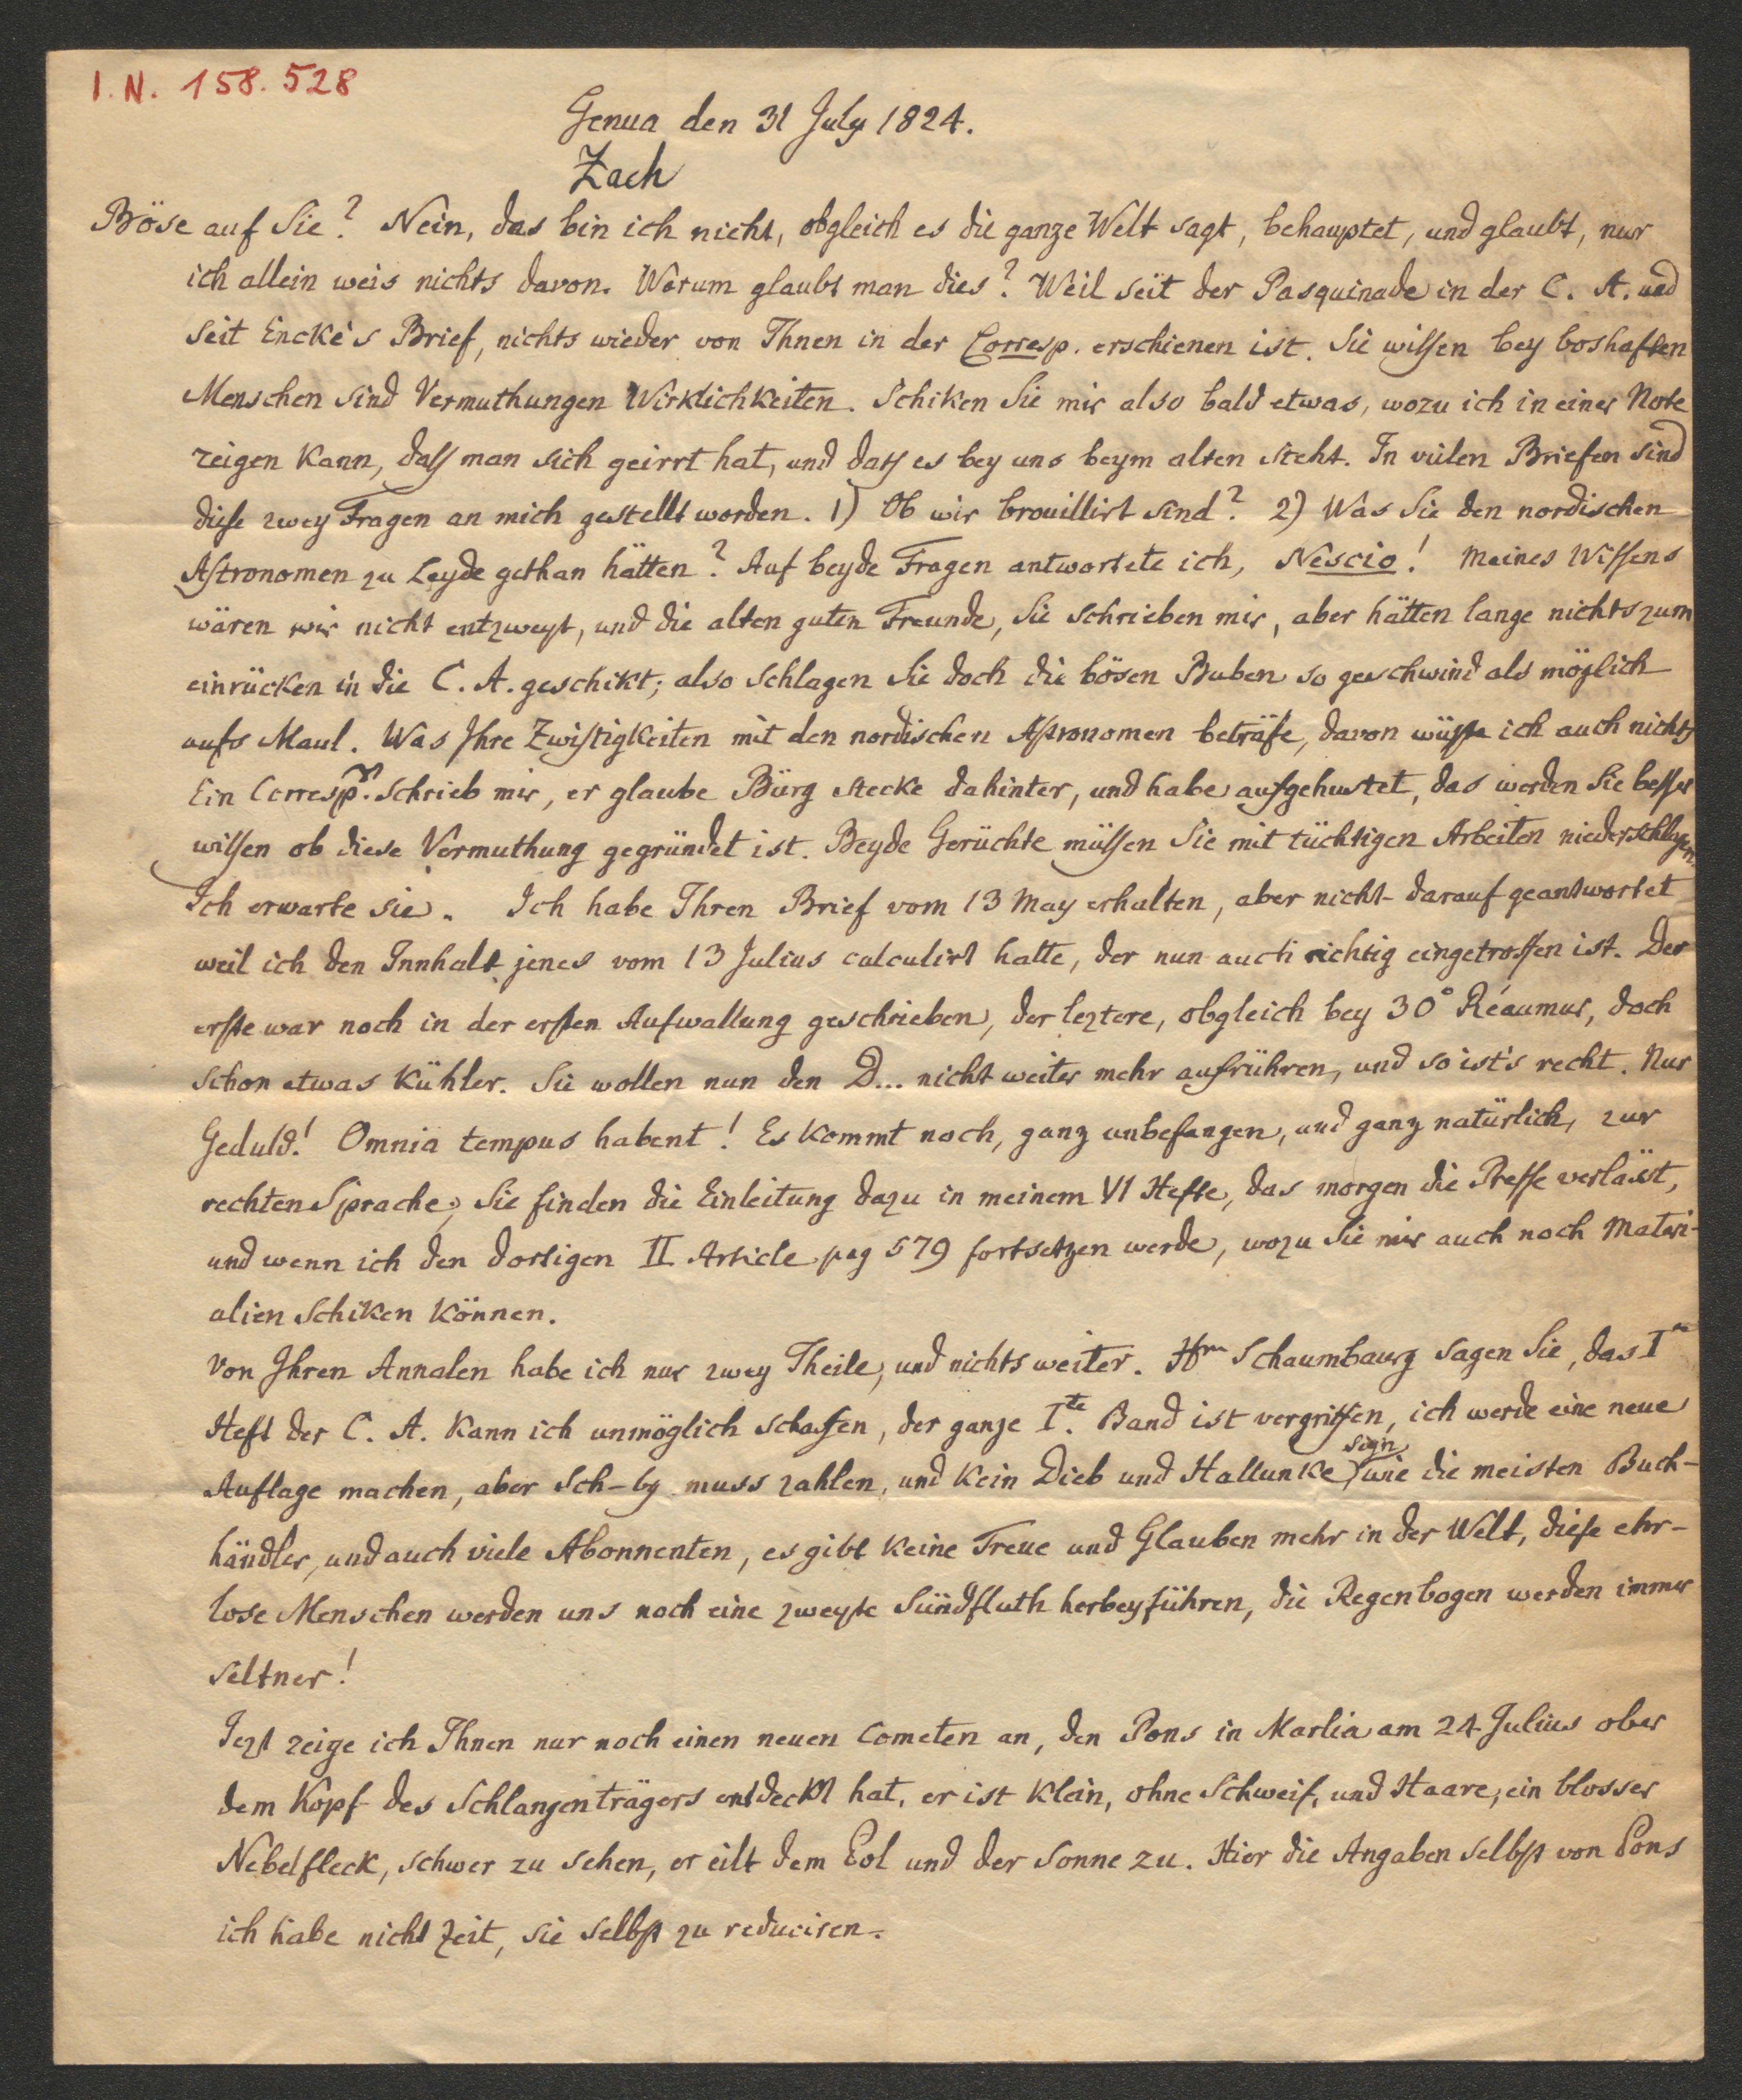 I. N. 158.528
Genua den 31 July 1824.
Zach
Böse auf Sie? Nein, das bin ich nicht, obgleich es die ganze Welt sagt, behauptet, und glaubt, nur
ich allein weis nichts davon. Warum glaubt man dies? Weil seit der Pasquinade in der C. A. und
seit Encke's Brief, nichts wieder von Ihnen in der Corresp. erschienen ist. Sie wissen bey boshaften
Menschen sind Vermuthungen Wirklichkeiten. Schiken Sie mir also bald etwas, wozu ich in einer Note
zeigen kann, dass man sich geirrt hat, und dass es bey uns beym alten steht. In vielen Briefen sind
diese zwey Fragen an mich gestellt worden. 1) Ob wir brouillirt sind? 2) Was Sie den nordischen
Astronomen zu Leyde gethan hätten? Auf beyde Fragen antwortete ich, Nescio! Meines Wissens
wären wir nicht entzweyt, und die alten guten Freunde, Sie schrieben mir, aber hätten lange nichts zum
einrücken in die C. A. geschikt; also schlagen Sie doch die bösen Buben so geschwind als möglich
aufs Maul. Was Ihre Zwistigkeiten mit den nordischen Astronomen beträfe, davon wüste ich auch nichts
Ein Corresp. schrieb mir, er glaube Bürg stecke dahinter, und habe aufgehustet, das werden Sie besser
wissen ob diese Vermuthung gegründet ist. Beyde Gerüchte müssen Sie mit tüchtigen Arbeiten niederschlagen
Ich erwarte sie. Ich habe Ihren Brief vom 13 May erhalten, aber nicht darauf geantwortet
weil ich den Innhalt jenes vom 13 Julius calculirt hatte, der nun auch richtig eingetroffen ist. Der
erste war noch in der ersten Aufwallung geschrieben, der leztere, obgleich bey 30° Réaumur, doch
schon etwas kühler. Sie wollen nun den D... nicht weiter mehr aufrühren, und so ist's recht. Nur
Geduld! Omnia tempus habent! Es kommt noch, ganz unbefangen, und ganz natürlich, zur
rechten Sprache; Sie finden die Einleitung dazu in meinem VI Hefte, das morgen die Presse verlässt,
und wenn ich den dortigen II Article pag 579 fortsetzen werde, wozu Sie mir auch noch Materi-
alien schiken können.
Von Ihren Annalen habe ich nur zwey Theile, und nichts weiter. Hrn Schaumbourg sagen Sie, das Ite
Heft der C. A. kann ich unmöglich schaffen, der ganze Ite. Band ist vergriffen, ich werde eine neue
Auflage machen, aber Sch-bg muss zahlen, und kein Dieb und Hallunke seyn, wie die meisten Buch-
händler, und auch viele Abonnenten, es gibt keine Treue und Glauben mehr in der Welt, diese ehr-
lose Menschen werden uns noch eine zweyte Sündfluth herbeyführen, die Regenbogen werden immer
seltner!
Jezt zeige ich Ihnen nur noch einen neuen Cometen an, den Pons in Marlia am 24 Julius ober
dem Kopf des Schlangenträgers entdeckt hat, er ist klein, ohne Schweif, und Haare, ein blosser
Nebelfleck, schwer zu sehen, er eilt dem Pol und der Sonne zu. Hier die Angaben selbst von Pons
ich habe nicht Zeit, sie selbst zu reduciren.